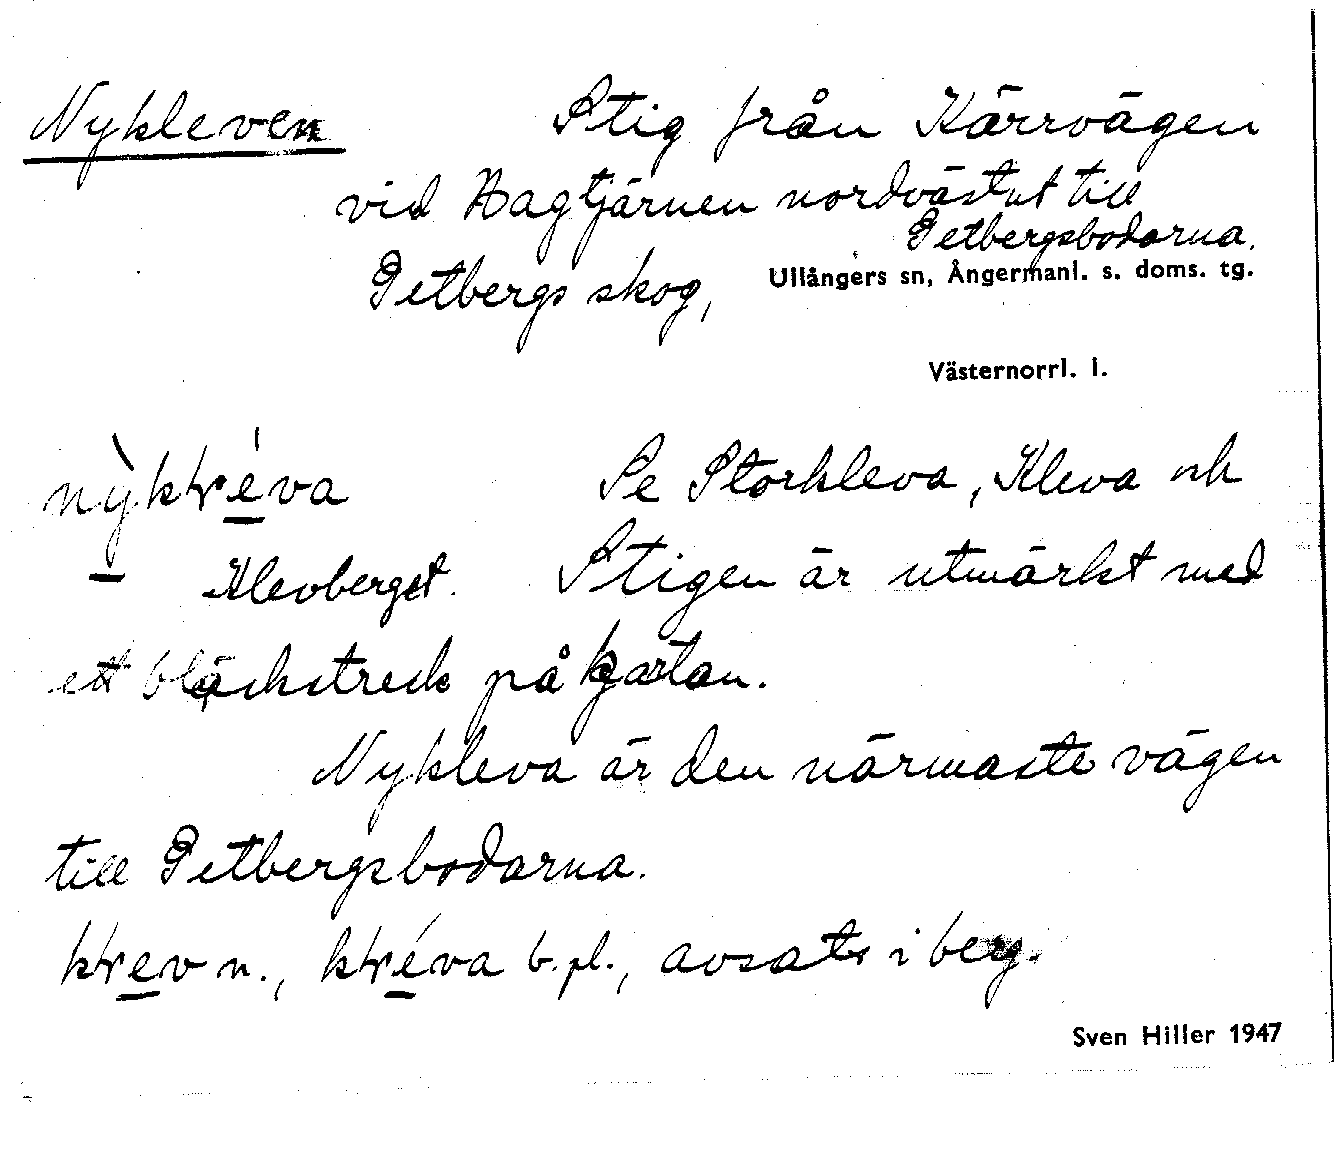 Nykleven Stig från Kärrvägen
vid Hagtjärnen nordvästut till
Getbergsbodarna.
Getbergs skog, Ullångers sn, Ångermanl. s. doms. tg.
Västernorrl. l.
nỳkkréva Se Storkleva, Kleva och
Klevberget. Stigen är utmärkt med
ett bläckstreck på kartan.
Nykleva är den närmaste vägen
till Getbergsbodarna.
n., b. pl., avsats i berg.
Sven Hiller 1947